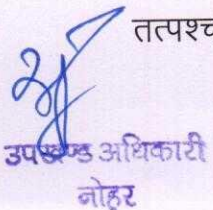 तत्पश्च
उपखण्ड अधिकारी
नोहर